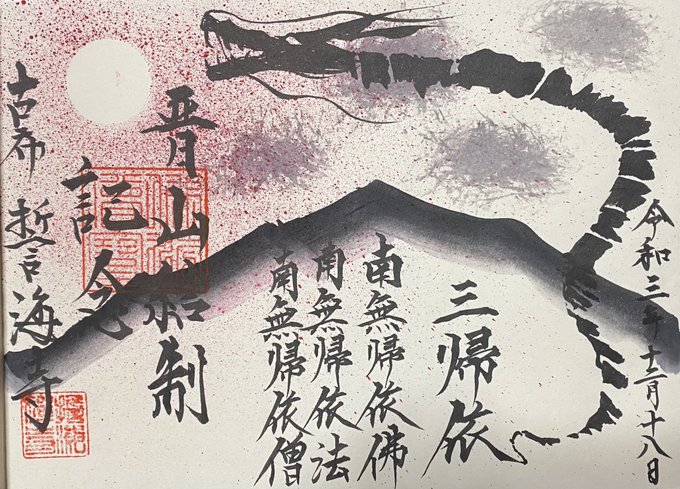 令和三年十二月十八日
三帰依
南無帰依佛
南無帰依法
南無帰依僧
晋山結制
記念
古布 誓海寺